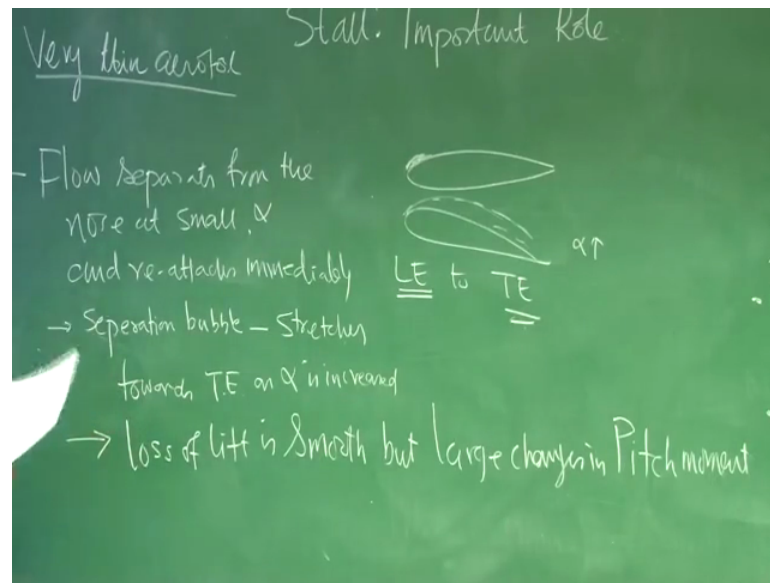 Stall: Important Role
Very thin aerofoil
- Flow separates from the
nose at small α
and re-attaches immediately
→ Seperation bubble - Stretches
towards T.E as α is increased
→ loss of lift is smooth but large changes in Pitch moment
α↑
LE to TE